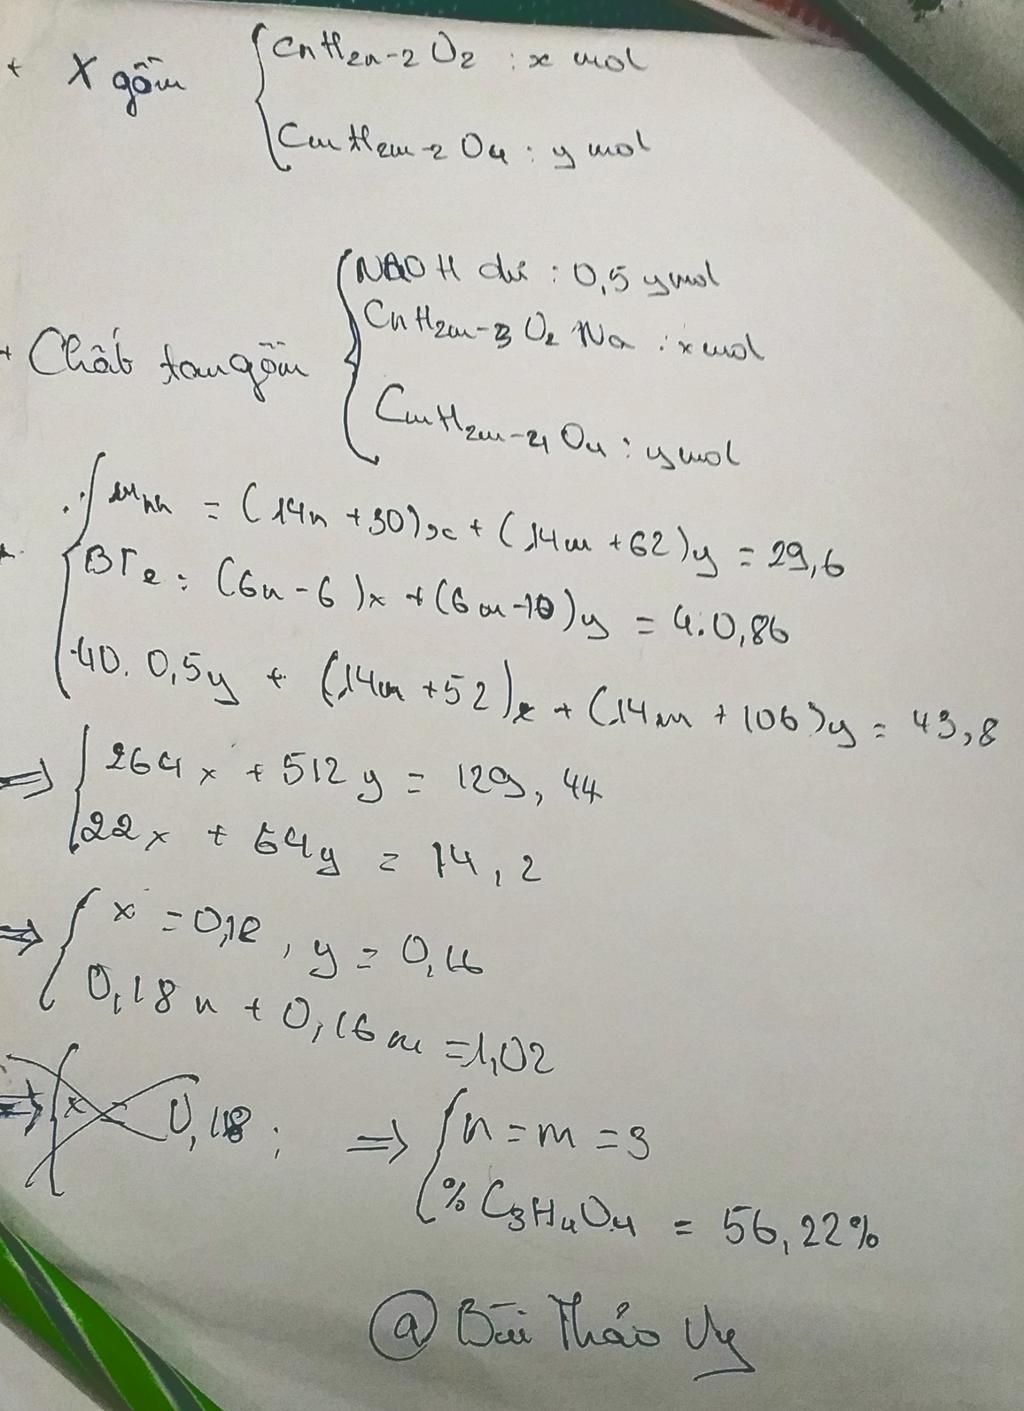 + X gồm { CnH2n-2O2 : x mol
CmH2m-2O4 : y mol
NaOH dư : 0,5 y mol
+ Chất tan gồm { CnH2m-3O2Na : x mol
CmH2m-4O4 : y mol
mhh = (14n + 30)x + (14m + 62)y = 29,6
BTe : (6n - 6)x + (6m - 10)y = 4.0,86
40. 0,5y + (14m + 52)x + (14m + 106)y = 43,8
=> { 264x + 512y = 129,44
22x + 64y = 14,2
=> { x = 0,18, y = 0,16
0,18n + 0,16m = 1,02
=> { x = 0,18 ; => { n = m = 3
% C3H4O4 = 56,22%
@ Bùi Thảo Vy